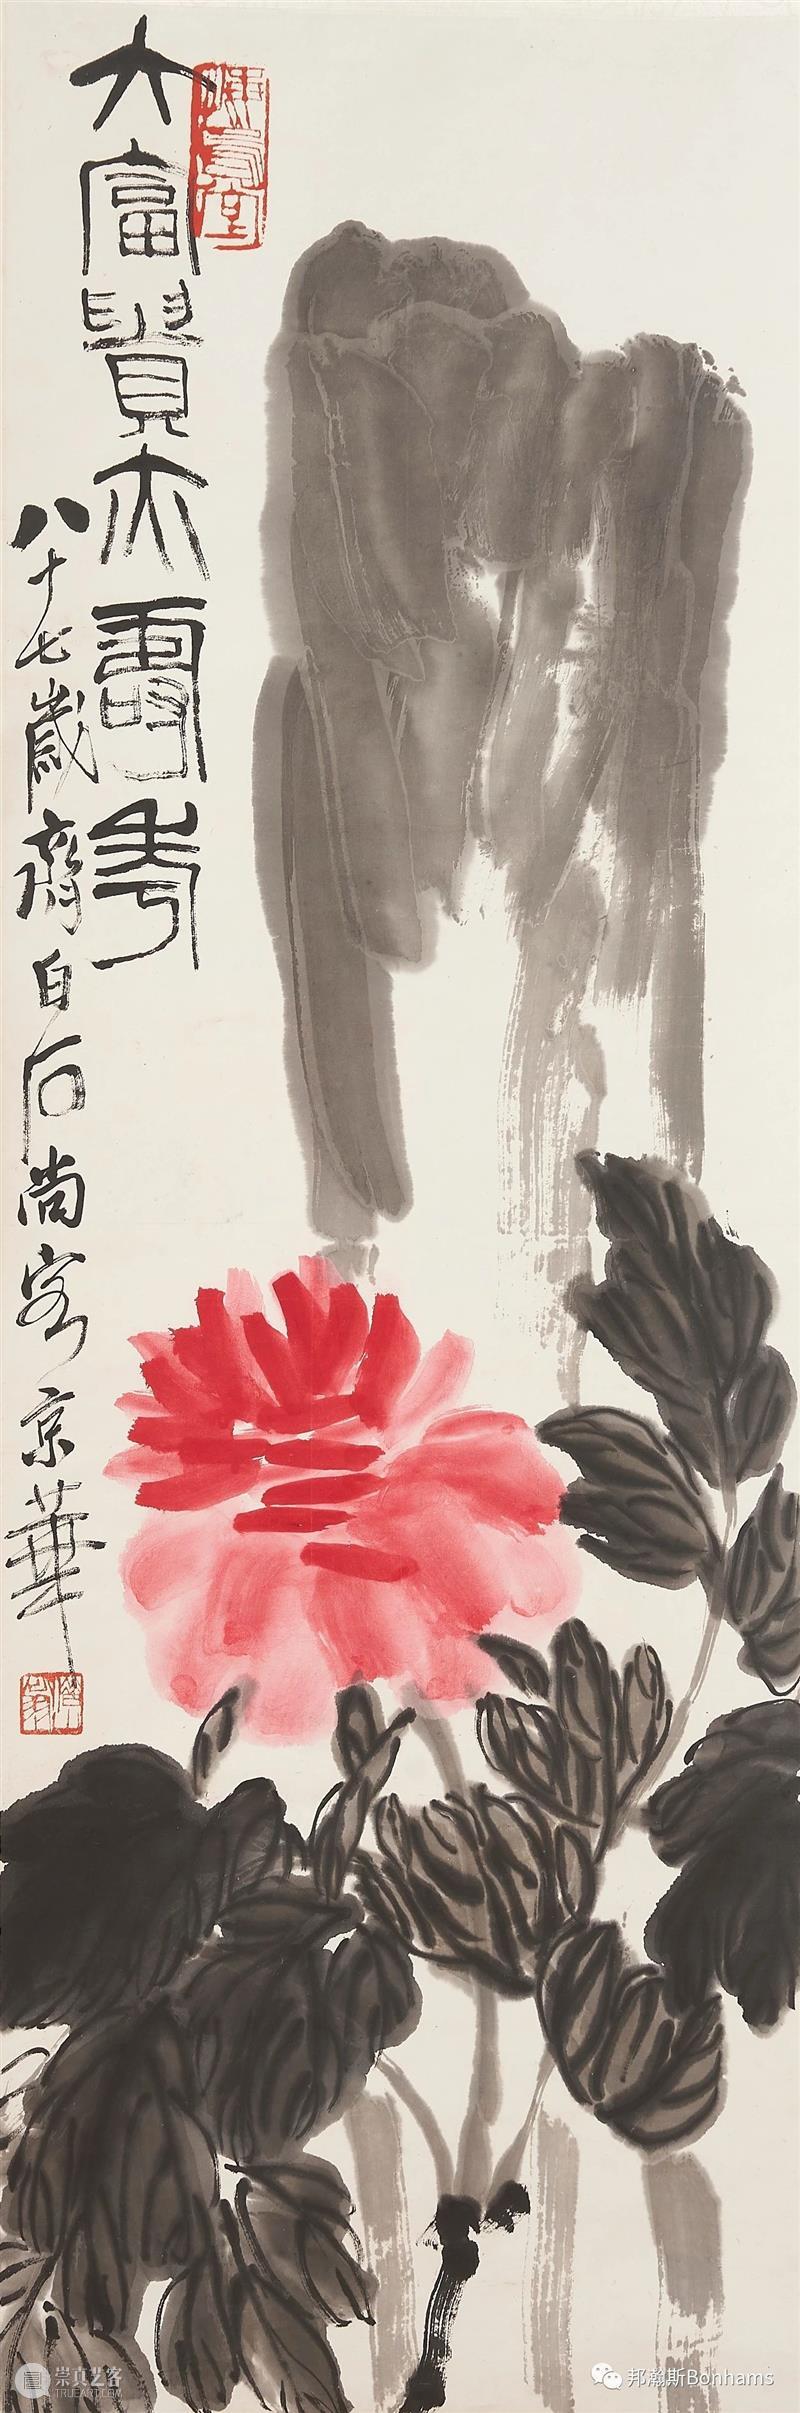 大富貴亦壽考
八十七歲齊白石尚客京華
悔烏堂
崇真艺客
TRUEART.COM
邦瀚斯Bonhams